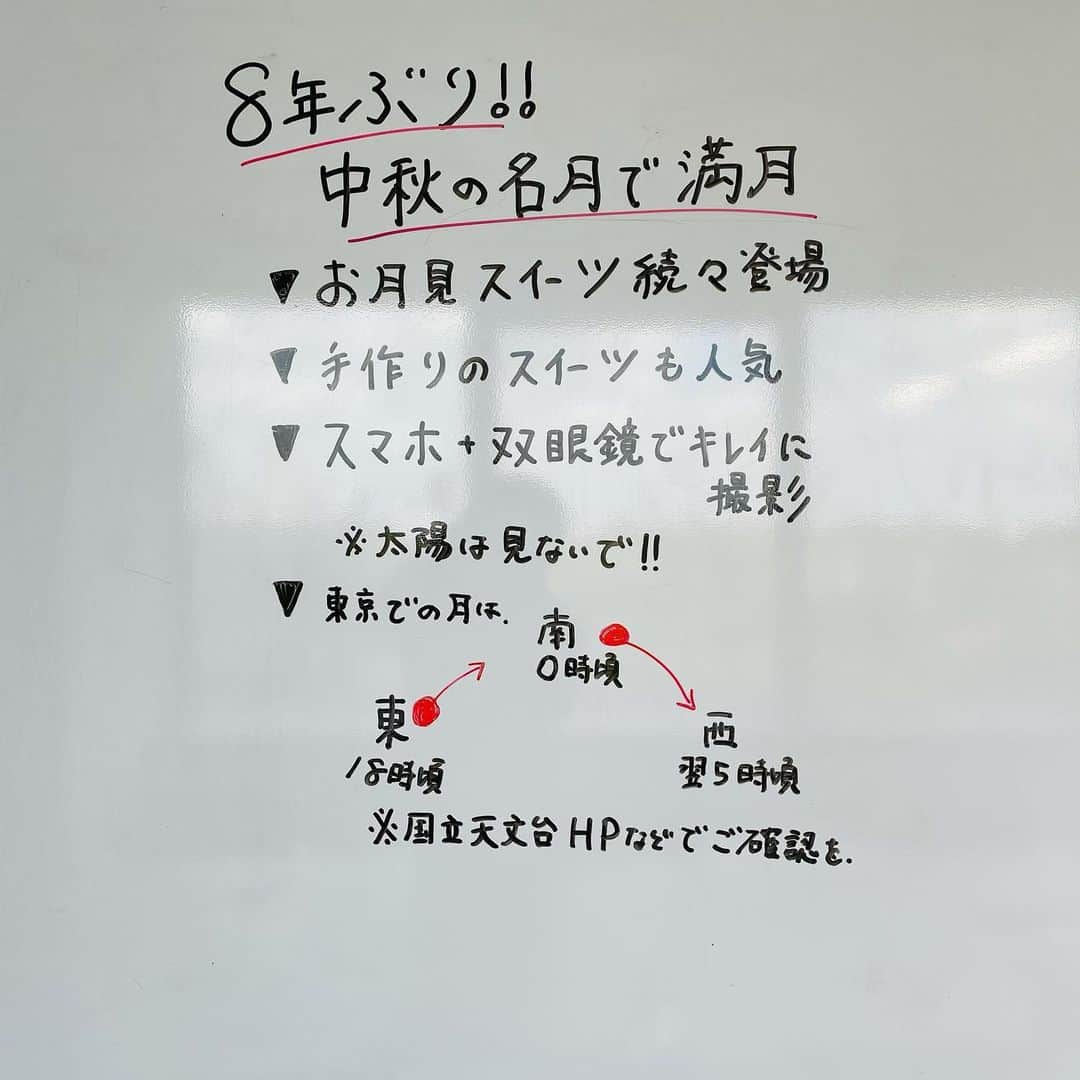 8年ぶり!!
中秋の名月で満月
▼お月見スイーツ続々登場
▼手作りのスイーツも人気
▼スマホ+双眼鏡でキレイに
撮影
※太陽は見ないで!!
▼東京での月は.
南
0時頃
東
18時頃
西
翌5時頃
※国立天文台HPなどでご確認を.